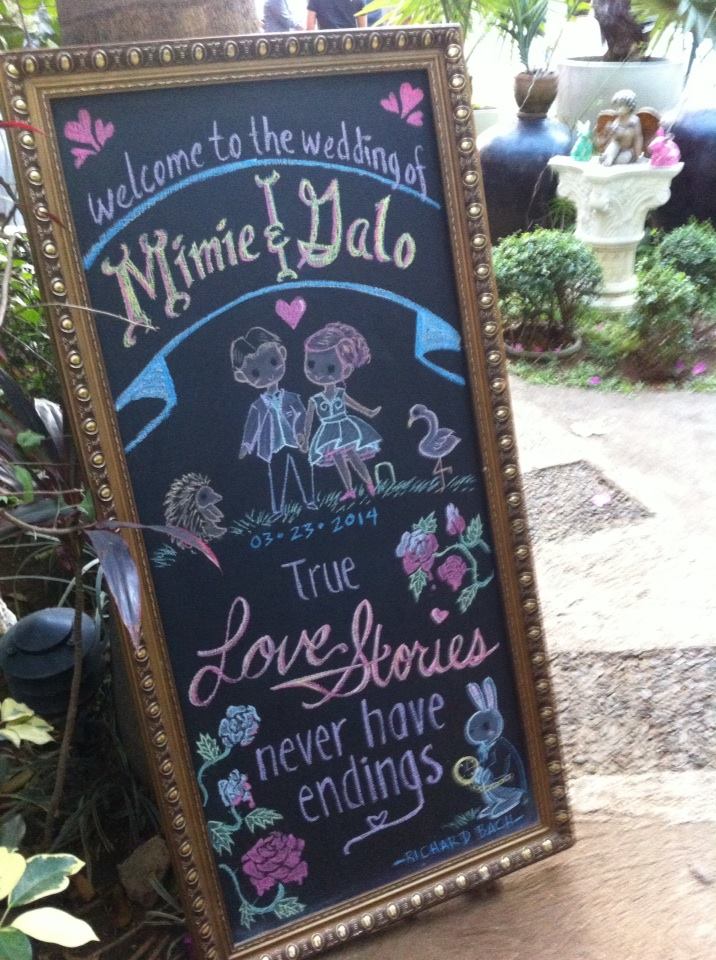 welcome to the wedding of
Mimie & Galo
03·23·2014
True
Love Stories
never have
endings
—RICHARD BACH—